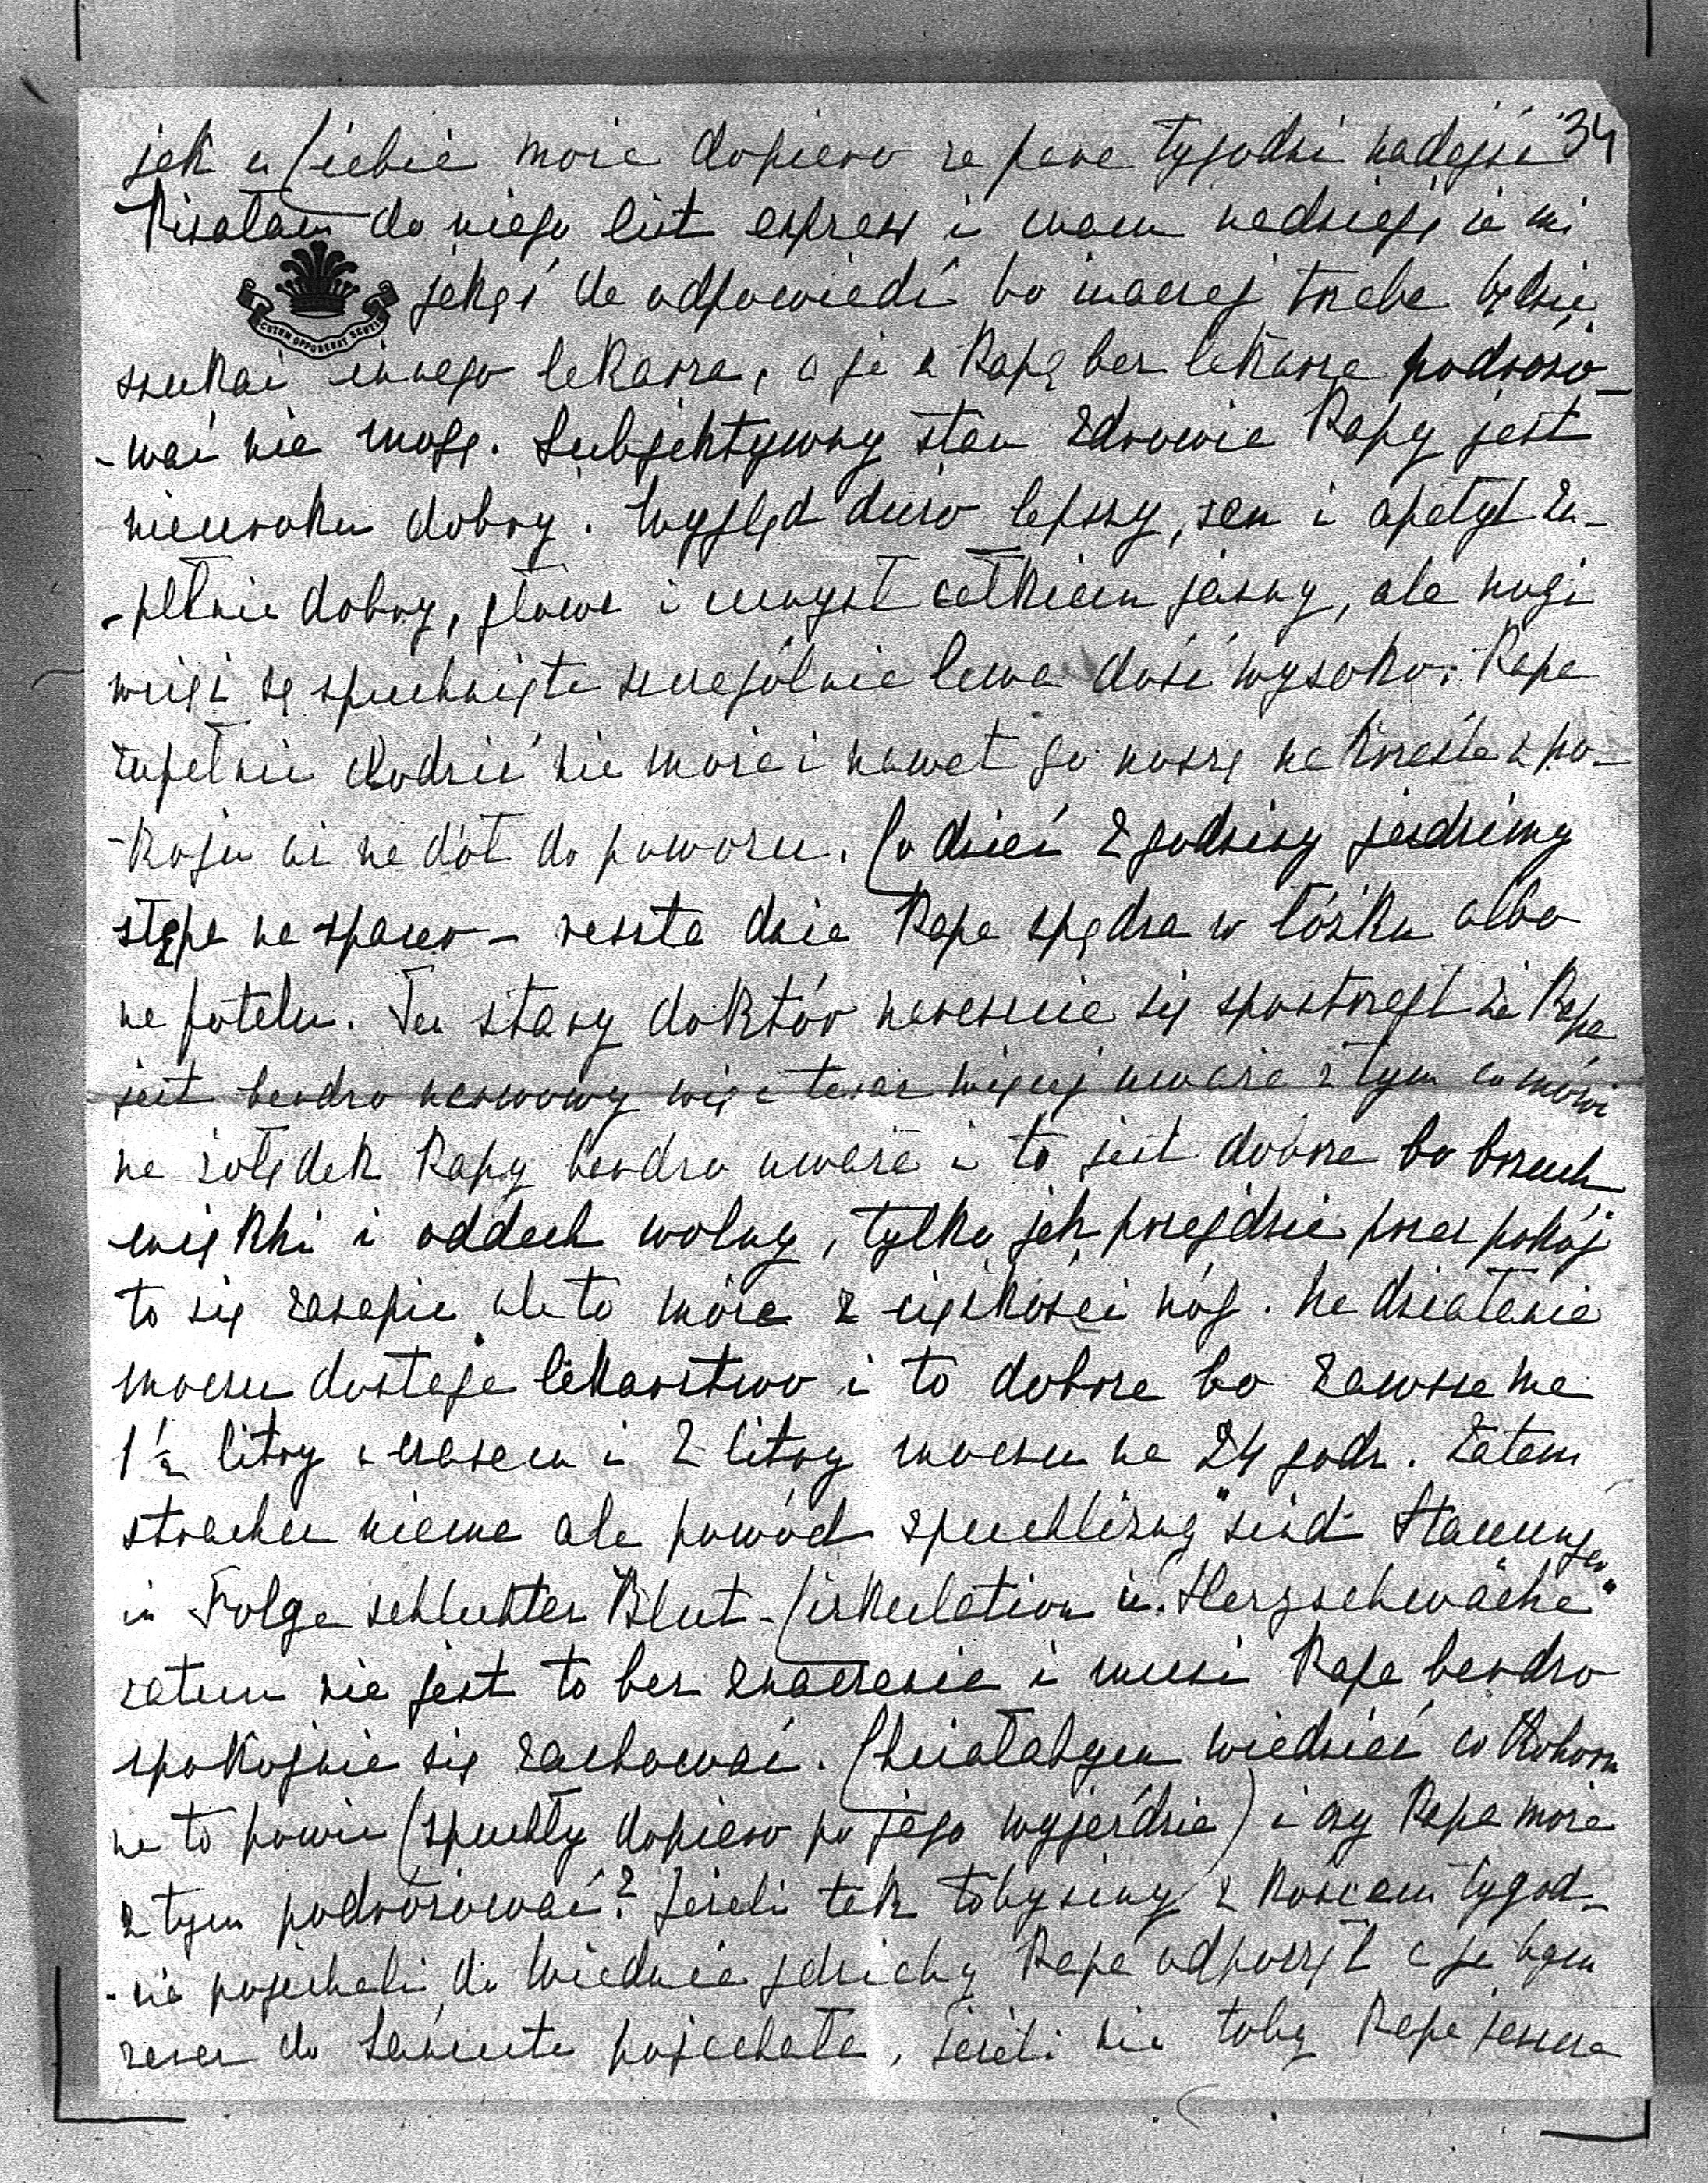 34
jak u Ciebie może dopiero za parę tygodni nadejść
Pisałam do niego list express i mam nadzieję że mi
CUTUM OPPONEBAT SCUTIS
jakąś da odpowiedź bo inaczej trzeba będzie
szukać innego lekarza, a ja z Papą bez lekarza podróżo-
-wać nie mogę. Subjektywny stan zdrowia Papy jest
nieuroku dobry. Wygląd dużo lepszy, sen i apetyt zu-
-pełnie dobry, głowa i umysł całkiem jasny, ale nogi
wciąż są spuchnięte szczególnie lewa dość wysoko. Papa
zupełnie chodzić nie może i nawet go noszą na krześle z po-
-koju aż na dół do powozu. Co dzień 2 godziny jeździmy
stępa na spacer – reszta dnia Papa spędza w łóżku albo
na fotelu. Ten stary doktór nareszcie się spostrzegł że Papa
jest bardzo nerwowy więc teraz więcej uważa z tym co mówi
na żołądek Papy bardzo uważa i to jest dobrze bo brzuch
miękki i oddech wolny, tylko jak przejdzie przez pokój
to się zasapie ale to może z ciężkości nóg. Na działanie
moczu dostaje lekarstwo i to dobrze bo zawsze ma
1½ litry a czasem i 2 litry moczu na 24 godz. Zatem
strachu niema ale powód spuchlizny "sind Stauungen
in Folge schlechter Blut-Cirkulation u. Herzschwäche"
zatem nie jest to bez znaczenia i musi Papa bardzo
spokojnie się zachować. Chciałabym wiedzieć co
na to powie (spuchły dopiero po jego wyjeździe) i czy Papa może
z tym podróżować? Jeżeli tak tobyśmy z końcem tygod-
-nia pojechali do Wiednia gdzieby Papa odpoczął a ja bym
zaraz do Łańcuta pojechała, jeżeli nie toby Papa jeszcze